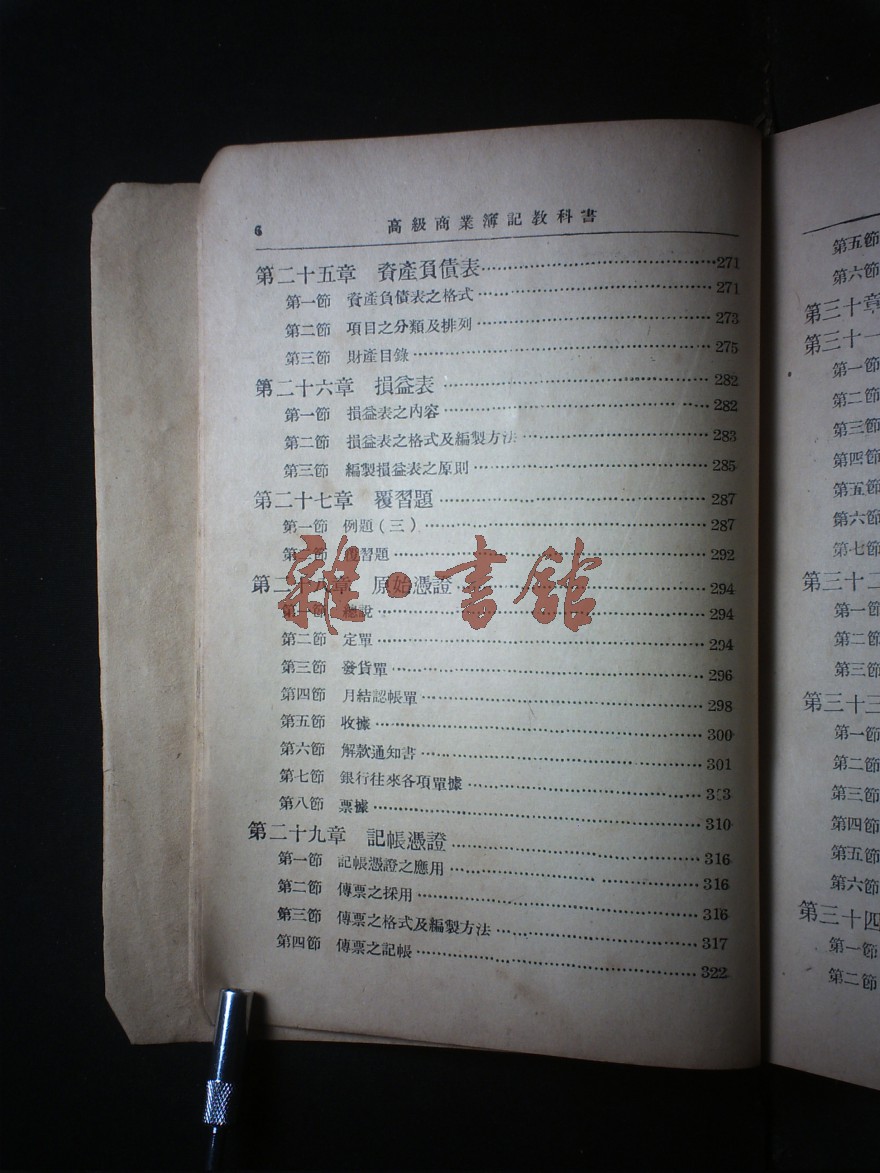 6 高級商業簿記教科書
第二十五章 資產負債表……271
第一節 資產負債表之格式……271
第二節 項目之分類及排列……273
第三節 財產目錄……275
第二十六章 損益表……282
第一節 損益表之內容……282
第二節 損益表之格式及編製方法……283
第三節 編製損益表之原則……285
第二十七章 覆習題……287
第一節 例題(三)……287
第二節 覆習題……292
第二十八章 原始憑證……294
第一節 總說……294
第二節 定單……294
第三節 發貨單……296
第四節 月結認帳單……298
第五節 收據……300
第六節 解款通知書……301
第七節 銀行往來各項單據……303
第八節 票據……310
第二十九章 記帳憑證……316
第一節 記帳憑證之應用……316
第二節 傳票之採用……316
第三節 傳票之格式及編製方法……317
第四節 傳票之記帳……322
雜·書館
第五節
第六節
第三十章
第三十一
第一節
第二節
第三節
第四節
第五節
第六節
第七節
第三十二
第一節
第二節
第三節
第三十三
第一節
第二節
第三節
第四節
第五節
第六節
第三十四
第一節
第二節